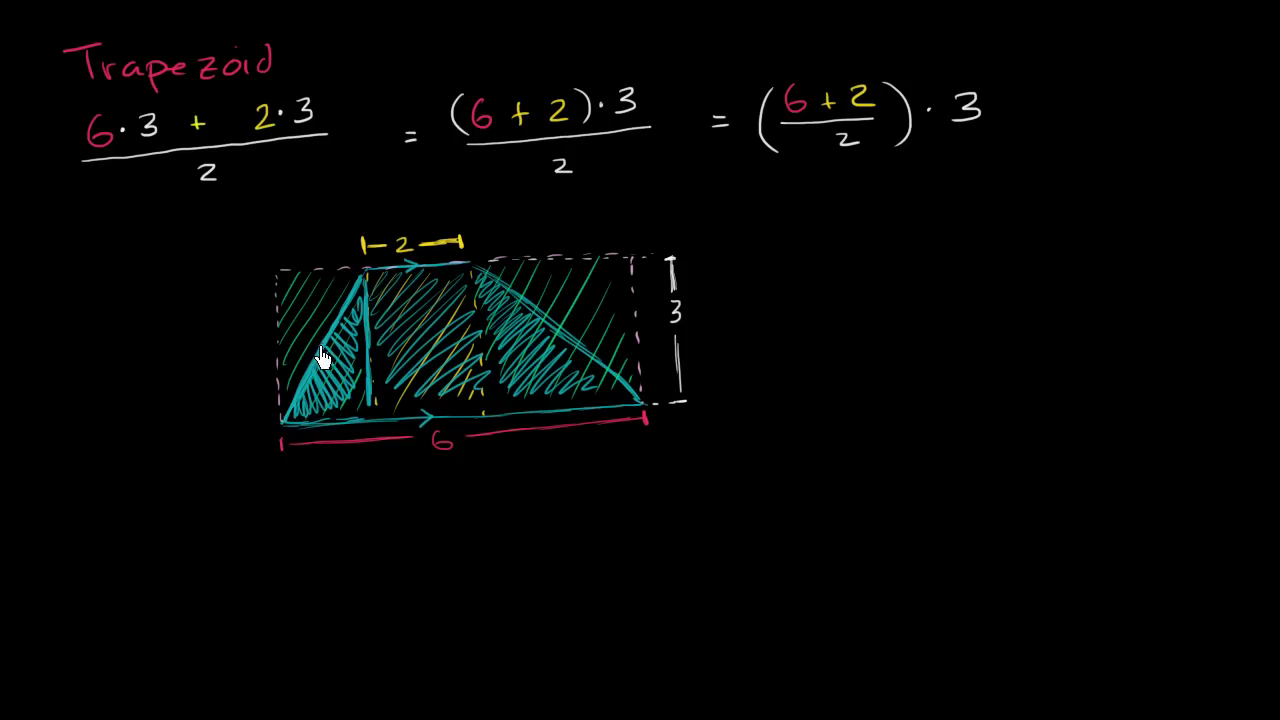 Trapezoid
6·3 + 2·3 / 2 = (6 + 2)·3 / 2 = (6 + 2 / 2) · 3
2
3
6